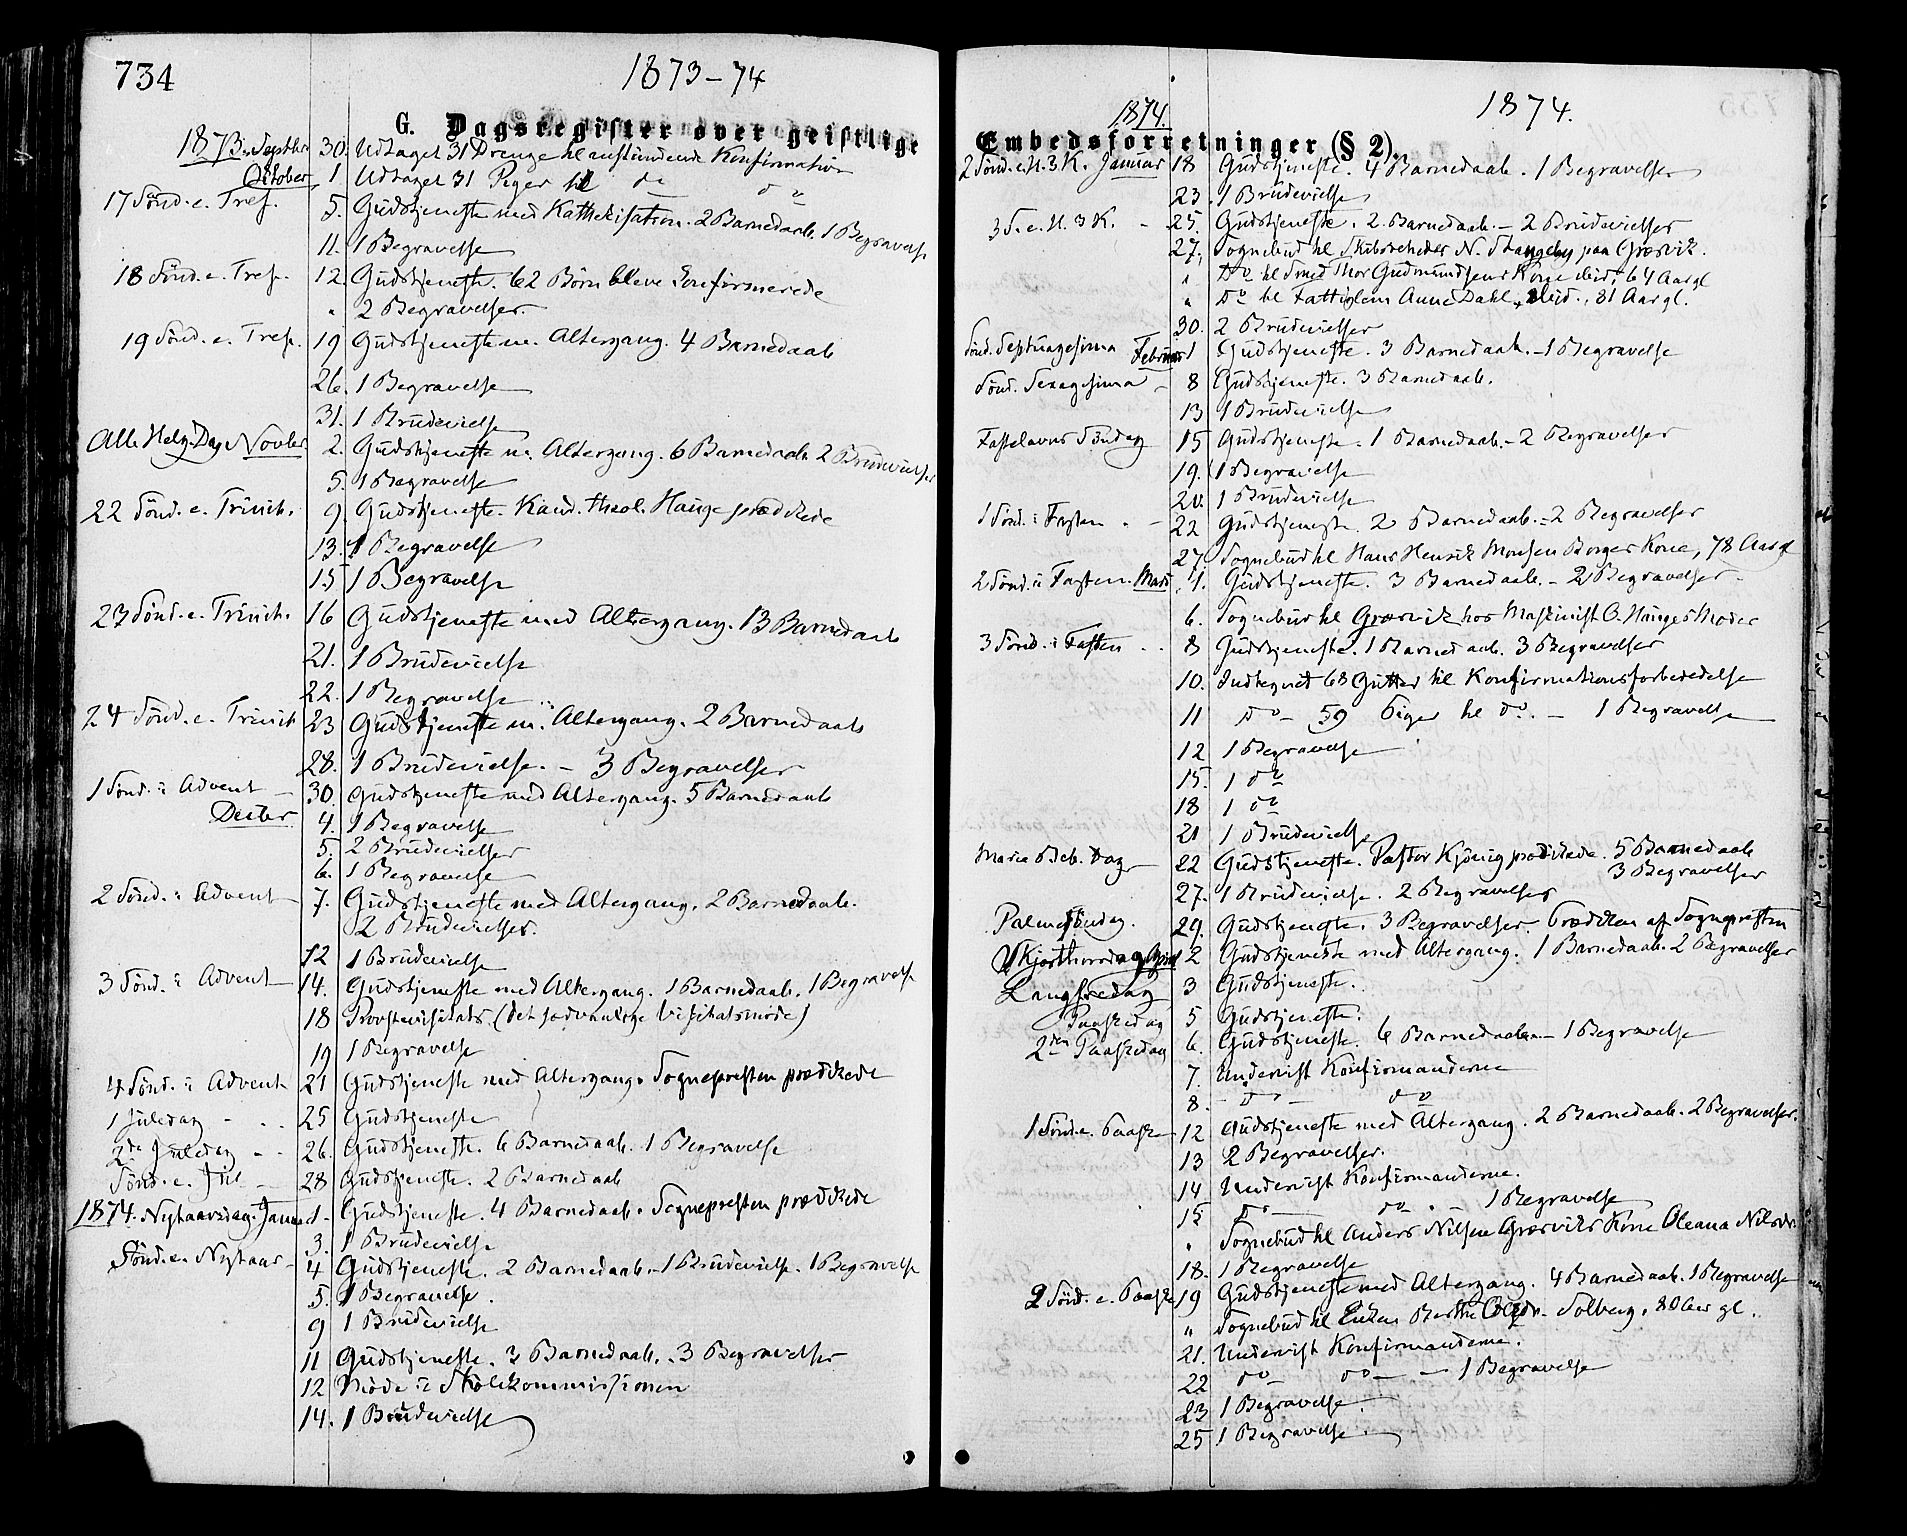 734
1873-74
G. Dagsregister over geistlige
1873. Septbr. 30. Udtaget 31 Drenge til anstundende Konfirmation
Oktober 1. Udtaget 31 Piger til do do
17 Sönd. e. Tref. 5. Gudstjeneste med Kathekisation. 2 Barnedaab. 1 Begravelse
11. 1 Begravelse
18 Sönd. e. Tref. 12. Gudstjeneste. 62 Börn bleve Confirmerede
" 2 Begravelser.
19 Sönd. e. Tref. 19 Gudstjeneste m. Altergang. 4 Barnedaab
26. 1 Begravelse
31. 1 Brudevielse
Alle Helg. Dag Novber 2. Gudstjeneste m. Altergang. 6 Barnedaab 2 Brudevielser
5. 1 Begravelse
22 Sönd. e. Trinit. 9. Gudstjeneste. Kand. theol. Hauge prædikede
13. 1 Begravelse
15 1 Begravelse
23 Sönd. e. Trinit. 16 Gudstjeneste med Altergang. 13 Barnedaab
21. 1 Brudevielse
22. 1 Begravelse
24 Sönd. e. Trinit 23 Gudstjeneste m. Altergang. 2 Barnedaab
28. 1 Brudevielse. - 3 Begravelser
1 Sönd. i Advent - 30. Gudstjeneste med Altergang. 5 Barnedaab
Decbr 4. 1 Begravelse
5. 2 Brudevielser
6. 1 Begravelse
2 Sönd. i Advent - 7. Gudstjeneste med Altergang. 2 Barnedaab.
2 Brudevielser.
12 1 Brudevielse
3 Sönd. i Advent - 14. Gudstjeneste med Altergang. 1 Barnedaab. 1 Begravelse
18 Provstevisitats (det sædvanlige Visitatsmöde)
19 1 Begravelse
4 Sönd. i Advent 21 Gudstjeneste med Altergang. Sognepresten prædikede
1 Juledag - . . 25 Gudstjeneste
2de Juledag - - 26. Gudstjeneste. 6 Barnedaab. 1 Begravelse
Sönd. e. Jul - 28 Gudstjeneste. 2 Barnedaab
1874. Nytaarsdag. Januar 1 - Gudstjeneste. 4 Barnedaab. Sognepresten prædikede
3. 1 Brudevielse
Sönd. e. Nytaar - 4 Gudstjeneste. 2 Barnedaab. - 1 Brudevielse. 1 Begravelse
5. 1 Begravelse.
9 1 Brudevielse
11 Gudstjeneste. 3 Barnedaab. . 3 Begravelser
12 Möde i Skolekommissionen
14. 1 Brudevielse
1874.
1874.
Embedsforretninger (§ 2).
2 Sönd. e. H. 3 K. Januar 18 Gudstjeneste. 4 Barnedaab. 1 Begravelse
23. 1 Brudevielse
3 S. e. H. 3 K. - 25. Gudstjeneste. 2 Barnedaab. - 2 Brudevielser
27. Sognebud til Skibsrheder N. Stangeby paa Græsvik.
" Do til Smed Thor Gudmundsens Kone ibid. 64 Aar gl
" Do til Fattiglem Anne Dahl, ibid., 81 Aar gl.
30. 2 Brudevielser
Sönd. Septuagesima Februar 1 Gudstjeneste. 3 Barnedaab. - 1 Begravelse
Sönd. Sexagesima - 8 Gudstjeneste. 3 Barnedaab.
13 1 Brudevielse
Fastelavns Söndag 15 Gudstjeneste. 1 Barnedaab. - 2 Begravelser
19. 1 Begravelse
20. 1 Brudevielse
1 Sönd. i Fasten . - 22 Gudstjeneste. 2 Barnedaab. - 2 Begravelser
27 Sognebud til Hans Henrik Monsen Borges Kone, 78 Aar gl
2 Sönd. i Fasten. Mars . 1. Gudstjeneste. 3 Barnedaab. - 2 Begravelser -
6. Sognebud til Græsvik hos Maskinist O. Hauges Moder
3 Sönd. i Fasten . . 8 Gudstjeneste. 1 Barnedaab. 3 Begravelser
10. Indtegnet 68 Gutter til Konfirmationsforberedelse
11 do - 59 Piger til do. - 1 Begravelse
12 1 Begravelse
15. 1 do
18 1 do
21 1 Brudevielse
Maria Beb. Dag - 22 Gudstjeneste. Pastor Kjönig prædikede. 5 Barnedaab
3 Begravelser
27. 1 Brudevielse. 2 Begravelser
Palmesöndag. 29. Gudstjeneste. 3 Begravelser. Prædiken af Sognepresten
Skjærthorsdag April 2 Gudstjeneste med Altergang. 1 Barnedaab. 2 Begravelser
Langfredag 3 Gudstjeneste.
Paaskedag 5 Gudstjeneste.
2den Paaskedag 6. Gudstjeneste. 6 Barnedaab - 1 Begravelse
7. Undervist Konfirmanderne
8. - do - do
1 Sönd. e. Paaske 12 Gudstjeneste med Altergang. 2 Barnedaab. 2 Begravelser.
13 2 Begravelser.
14 Undervist Konfirmanderne.
15 do - do. - 1 Begravelse
" Sognebud til Anders Nilsen Græsviks Kone Oleana Nilsdr.
18. 1 Begravelse
2 Sönd. e. Paaske 19 Gudstjeneste med Altergang. 4 Barnedaab. 1 Begravelse
" Sognebud til Enken Berthe Solberg. 80 Aar gl.
21. Undervist Konfirmanderne.
22 do - do - - 1 Begravelse
23 1 Begravelse.
25 1 Begravelse.